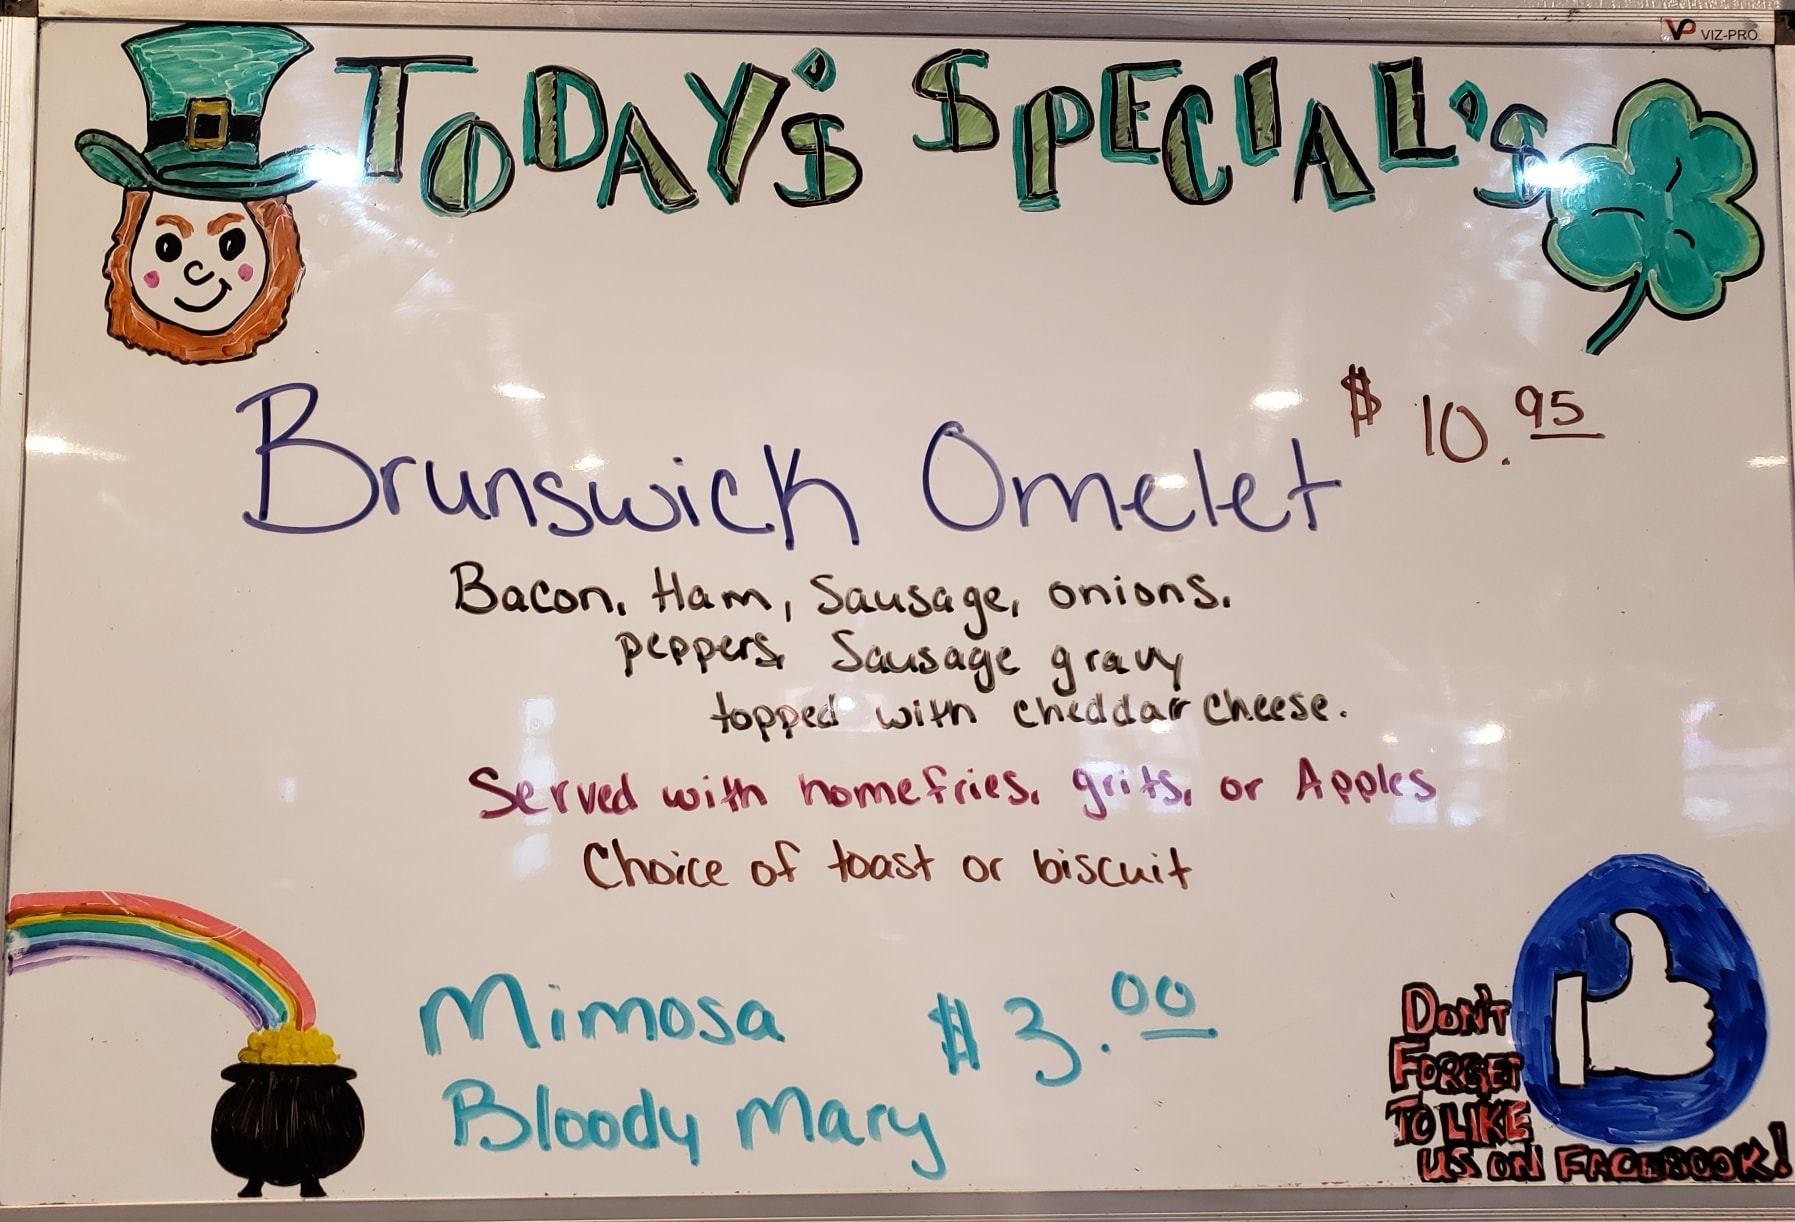 VP VIZ-PRO
TODAY'S SPECIAL'S
$ 10.95
Brunswick Omelet
Bacon, Ham, Sausage, onions,
peppers, Sausage gravy
topped with cheddar cheese.
Served with homefries, grits, or Apples
Choice of toast or biscuit
Mimosa $3.00
Bloody Mary
DON'T
FORGET
TO LIKE
US ON FACEBOOK!